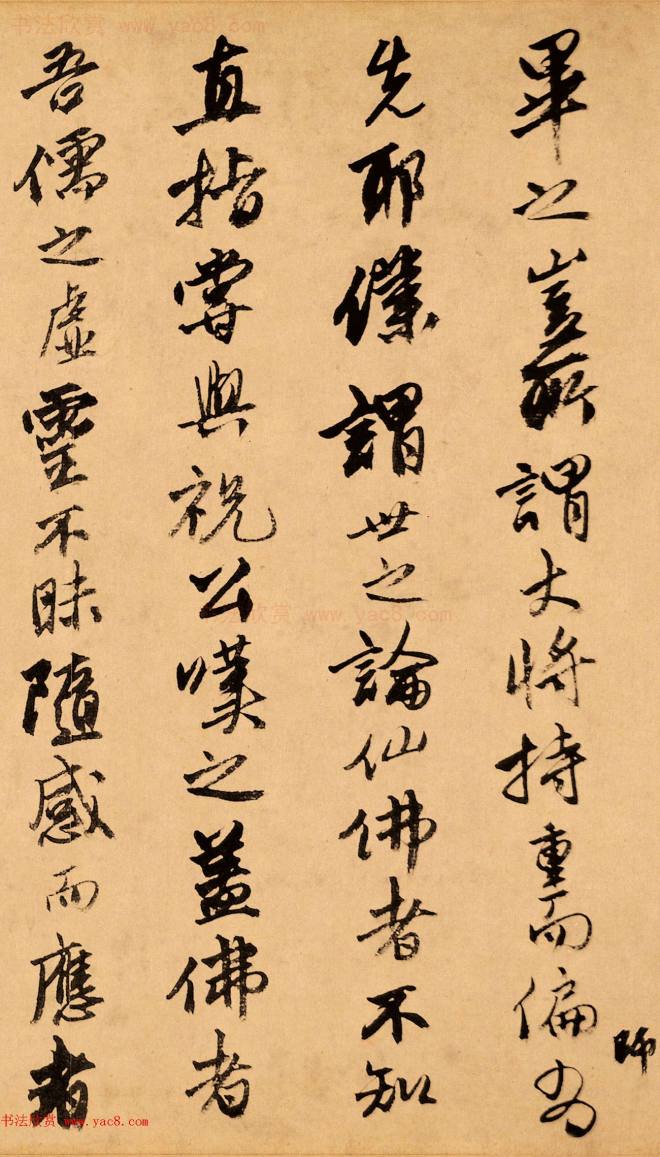 畢之豈所謂大將持重而偏為
師
先耶僕謂世之論仙佛者不知
直指嘗與祝公嘆之蓋佛者
吾儒之虛靈不昧隨感而應者
书法欣赏 www.yac8.com
书法欣赏 www.yac8.com
书法欣赏 www.yac8.com